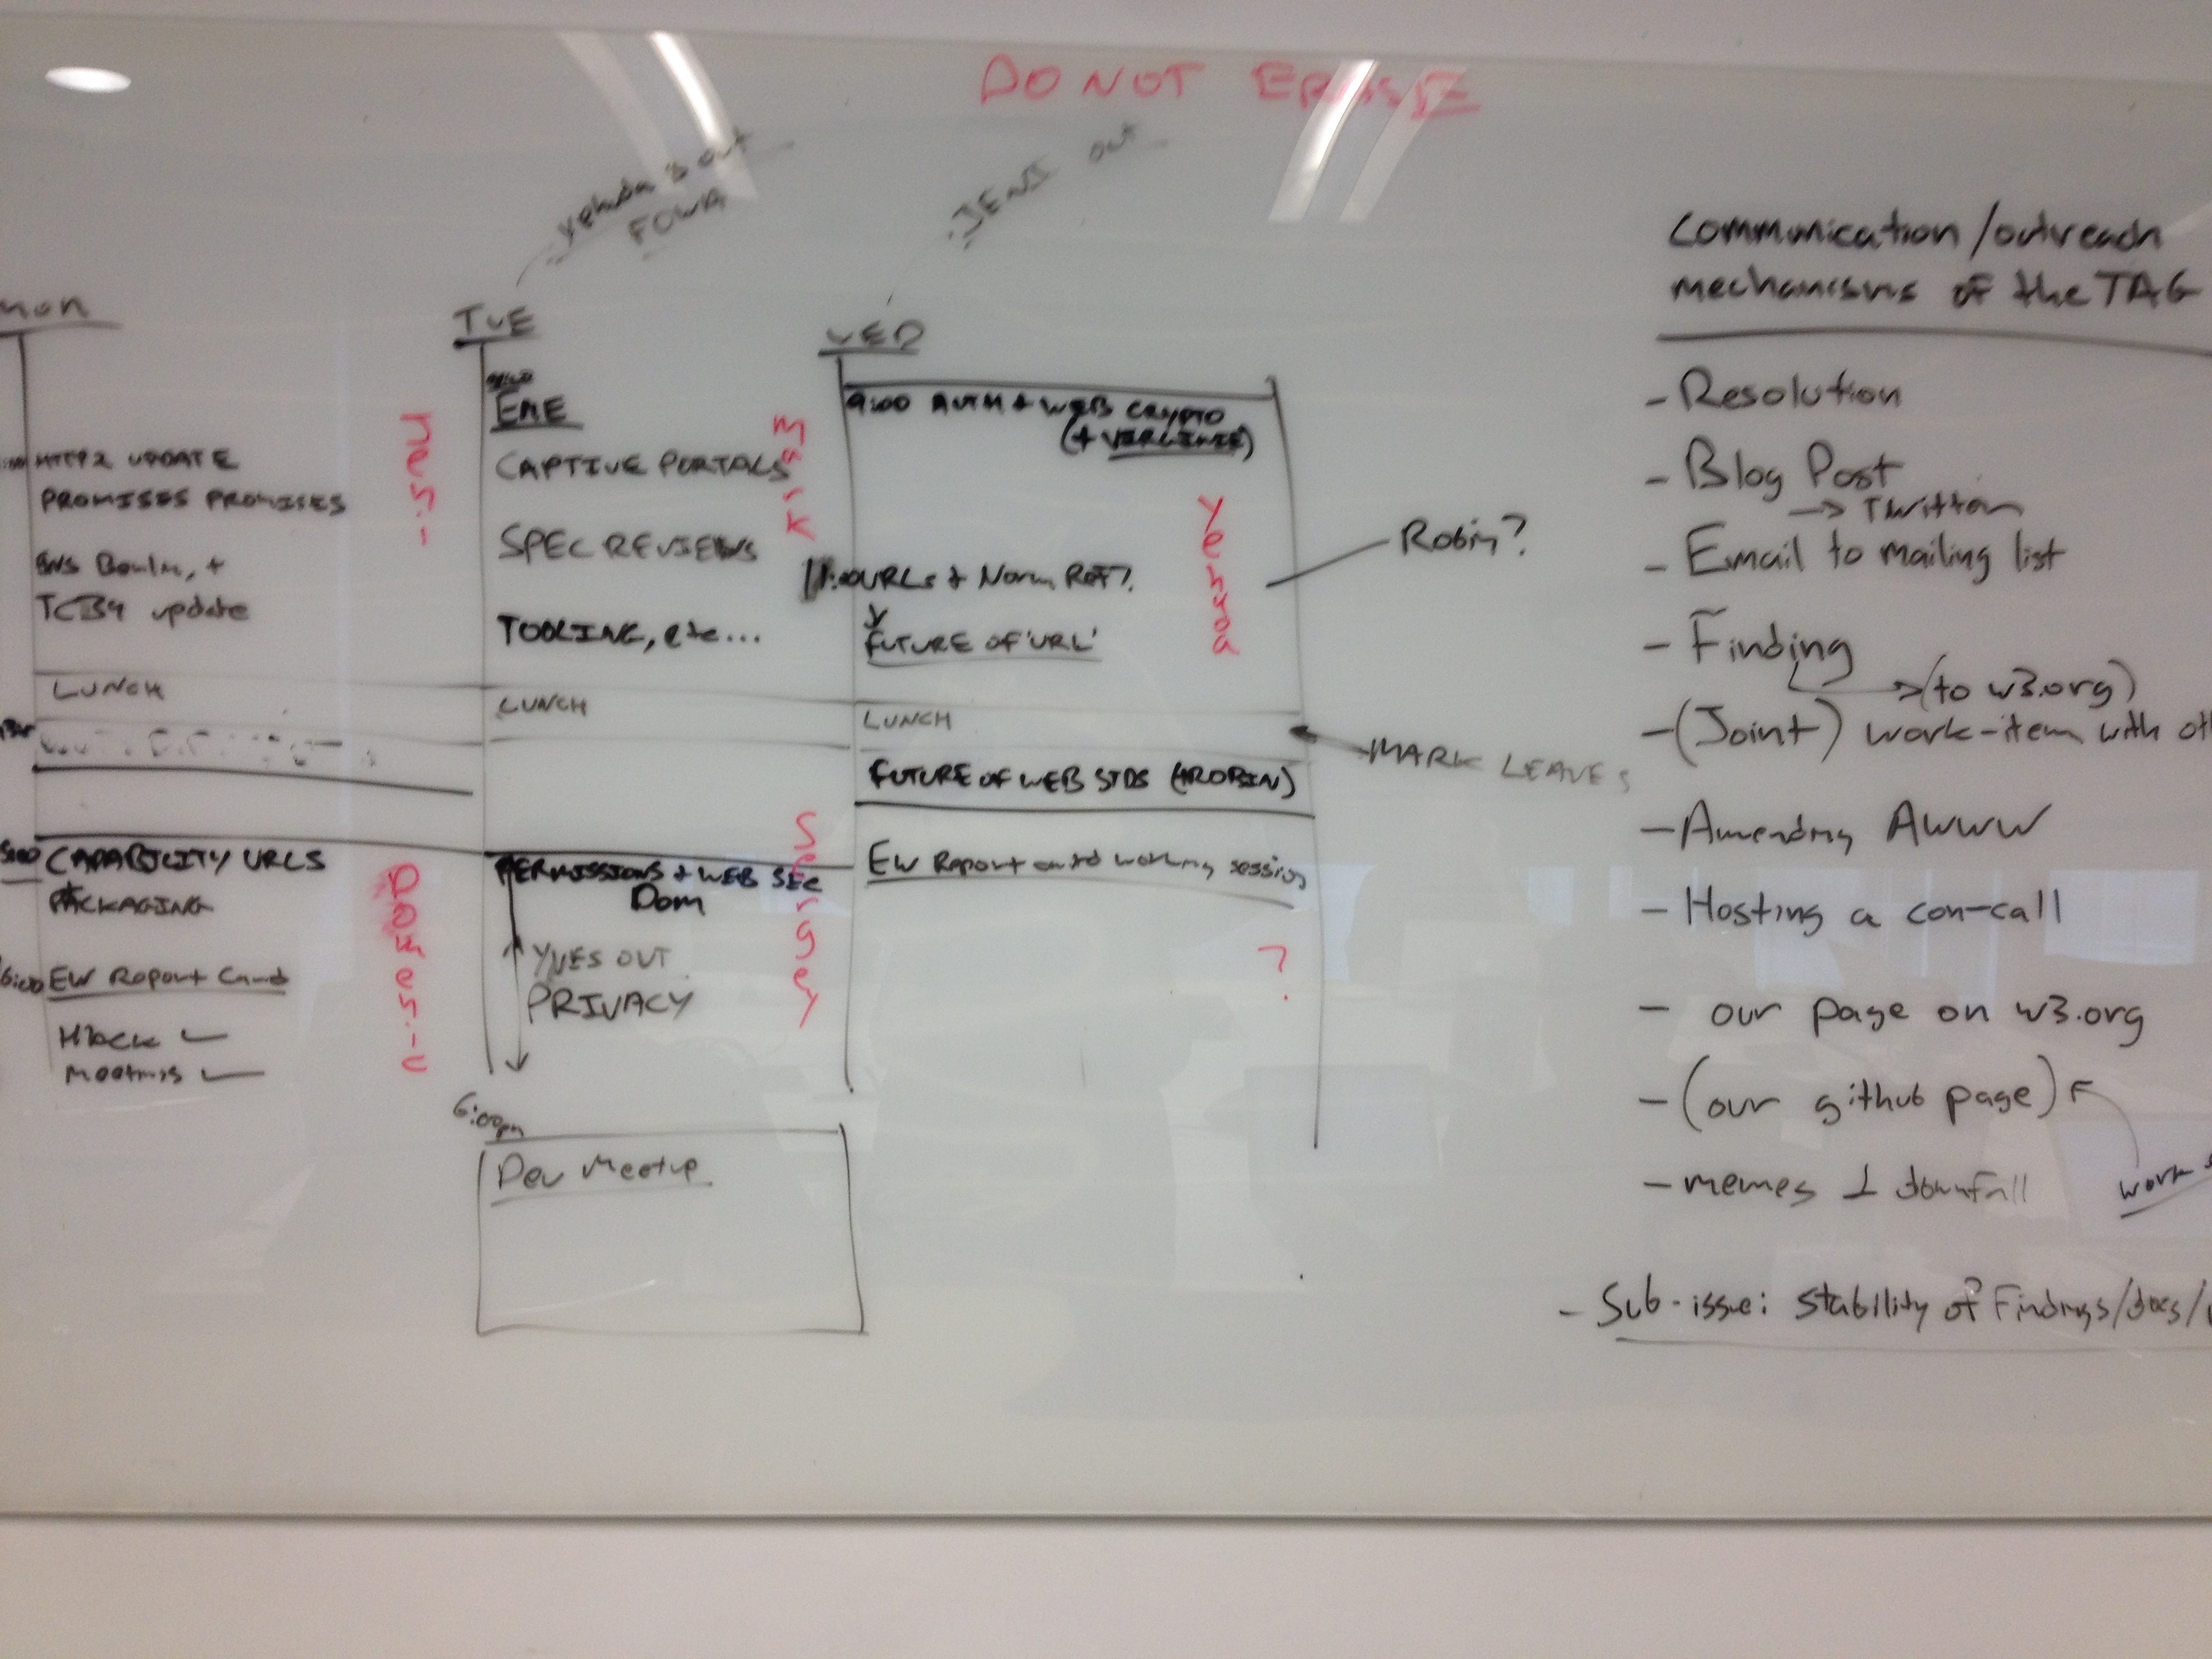 DO NOT ERASE
Yehuda is out
FOWA
JENI out
mon
HTTP2 UPDATE
PROMISES PROMISES
TC39 update
LUNCH
CAPABILITY URLS
PACKAGING
6:00 EW Report Card
Meetings
Heli
Domenic
TUE
EME
CAPTIVE PORTALS
SPEC REVIEWS
TOOLING, etc...
LUNCH
PERMISSIONS + WEB SEC
Dom
YVES OUT
PRIVACY
Mark
Sergey
6:00pm
Dev Meetup
WED
9:00 AUTH + WEB CRYPTO
(+ VIRGINIE)
11:00 URLs + Norm Ref?
FUTURE OF 'URL'
LUNCH
FUTURE OF WEB STDS (+ROBIN)
EW Report card working session
Yehuda
?
Robin?
MARK LEAVES
Communication/outreach
mechanisms of the TAG
- Resolution
- Blog Post
→ Twitter
- Email to mailing list
- Finding
→ (to w3.org)
- (Joint) work-item with
- Amending AWWW
- Hosting a con-call
- our page on w3.org
- (our github page)
work
- memes + downfall
- Sub-issue: Stability of Findings/docs/